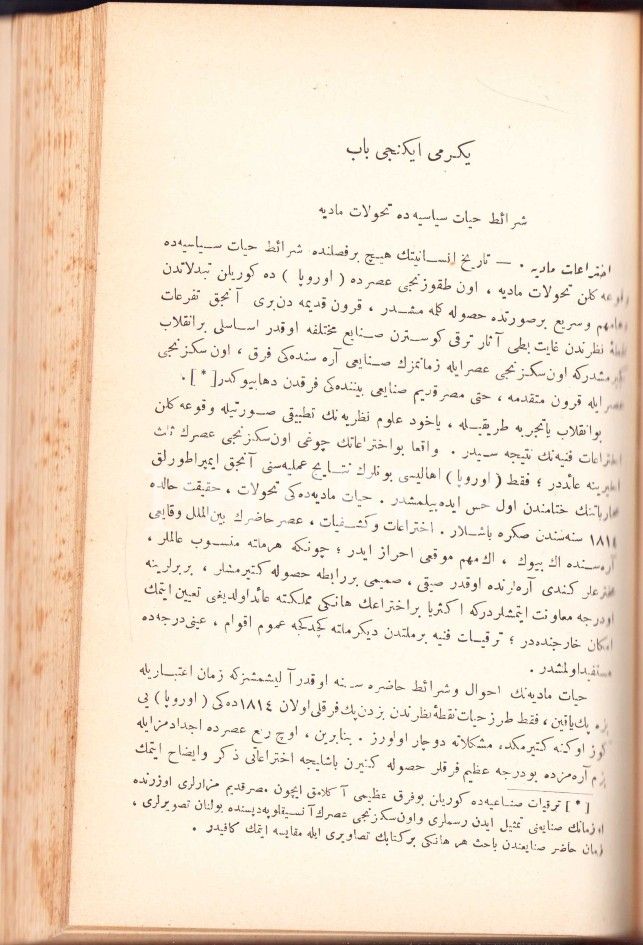 یکرمی ایکنجی باب
شرائط حیات سیاسیه ده تحولات مادیه
اختراعات مادیه . — تاریخ انسانیتك هیچ برفصلنده شرائط حیات سیاسیه ده
وقوعه کلن تحولات مادیه ، اون طقوزنجی عصرده ( اوروپا ) ده کوریلن تبدلاتدن
مهم وسریع برصورتده حصوله کلمه مشدر . قرون قدیمه دن بری آنجق تفرعات
نقطۀ نظرندن غایت بطی آثار ترقی کوسترن صنایع مختلفه اوقدر اساسلی برانقلاب
مشدرکه اون سکزنجی عصرایله زمانمزك صنایعی آره سنده کی فرق ، اون سکزنجی
عصر ایله قرون متقدمه ، حتی مصرقدیم صنایعی بیننده کی فرقدن دهابیوکدر [ * ] .
بوانقلاب یاتجربه طریقیله ، یاخود علوم نظریه نك تطبیقی صورتیله وقوعه کلن
اختراعات فنیه نك نتیجه سیدر . واقعا بواختراعاتك چوغی اون سکزنجی عصرك ثلث
اخیرینه عائددر ؛ فقط ( اوروپا ) اهالیسی بونلرك نتایج عملیه سنی آنجق ایمپراطورلق
محارباتنك ختامندن اول حس ایده بیلمشدر . حیات مادیه ده کی تحولات ، حقیقت حالده
١٨١٤ سنه سندن صکره باشلار . اختراعات وکشفیات ، عصر حاضرك بین الملل وقایعی
آره سنده اك بیوك ، اك مهم موقعی احراز ایدر ؛ چونکه هرملته منسوب عالملر ،
مخترعلر کندی آره لرنده اوقدر صیقی ، صمیمی بررابطه حصوله کتیرمشلر ، بربرلرینه
اودرجه معاونت ایتمشلردرکه اکثریا براختراعك هانکی مملکته عائد اولدیغی تعیین ایتمك
امکان خارجنده در ؛ ترقیات فنیه برملتدن دیکرملته کچدکجه عموم اقوام ، عینی درجه ده
مستفید اولمشدر .
حیات مادیه نك احوال وشرائط حاضره سنه اوقدر آلیشمشزکه زمان اعتباریله
بزه پك یاقین ، فقط طرز حیات نقطۀ نظرندن بزدن پك فرقلی اولان ١٨١٤ ده کی ( اوروپا ) یی
کوز اوکنه کتیرمکده مشکلاته دوچار اولورز . بناءبرین ، اوچ ربع عصرده اجدادمزایله
بزم آره مزده بودرجه عظیم فرقلر حصوله کتیرن باشلیجه اختراعاتی ذکر وایضاح ایتمك
[ * ] ترقیات صناعیه ده کوریلن بوفرق عظیمی آکلامق ایچون مصرقدیم مزارلری اوزرنده
اوزمانك صنایعنی تمثیل ایدن رسملری واون سکزنجی عصرك آنسیقلوپه دیسنده بولنان تصویرلری ،
زمان حاضر صنایعندن باحث هر هانکی برکتابك تصاویری ایله مقایسه ایتمك کافیدر .